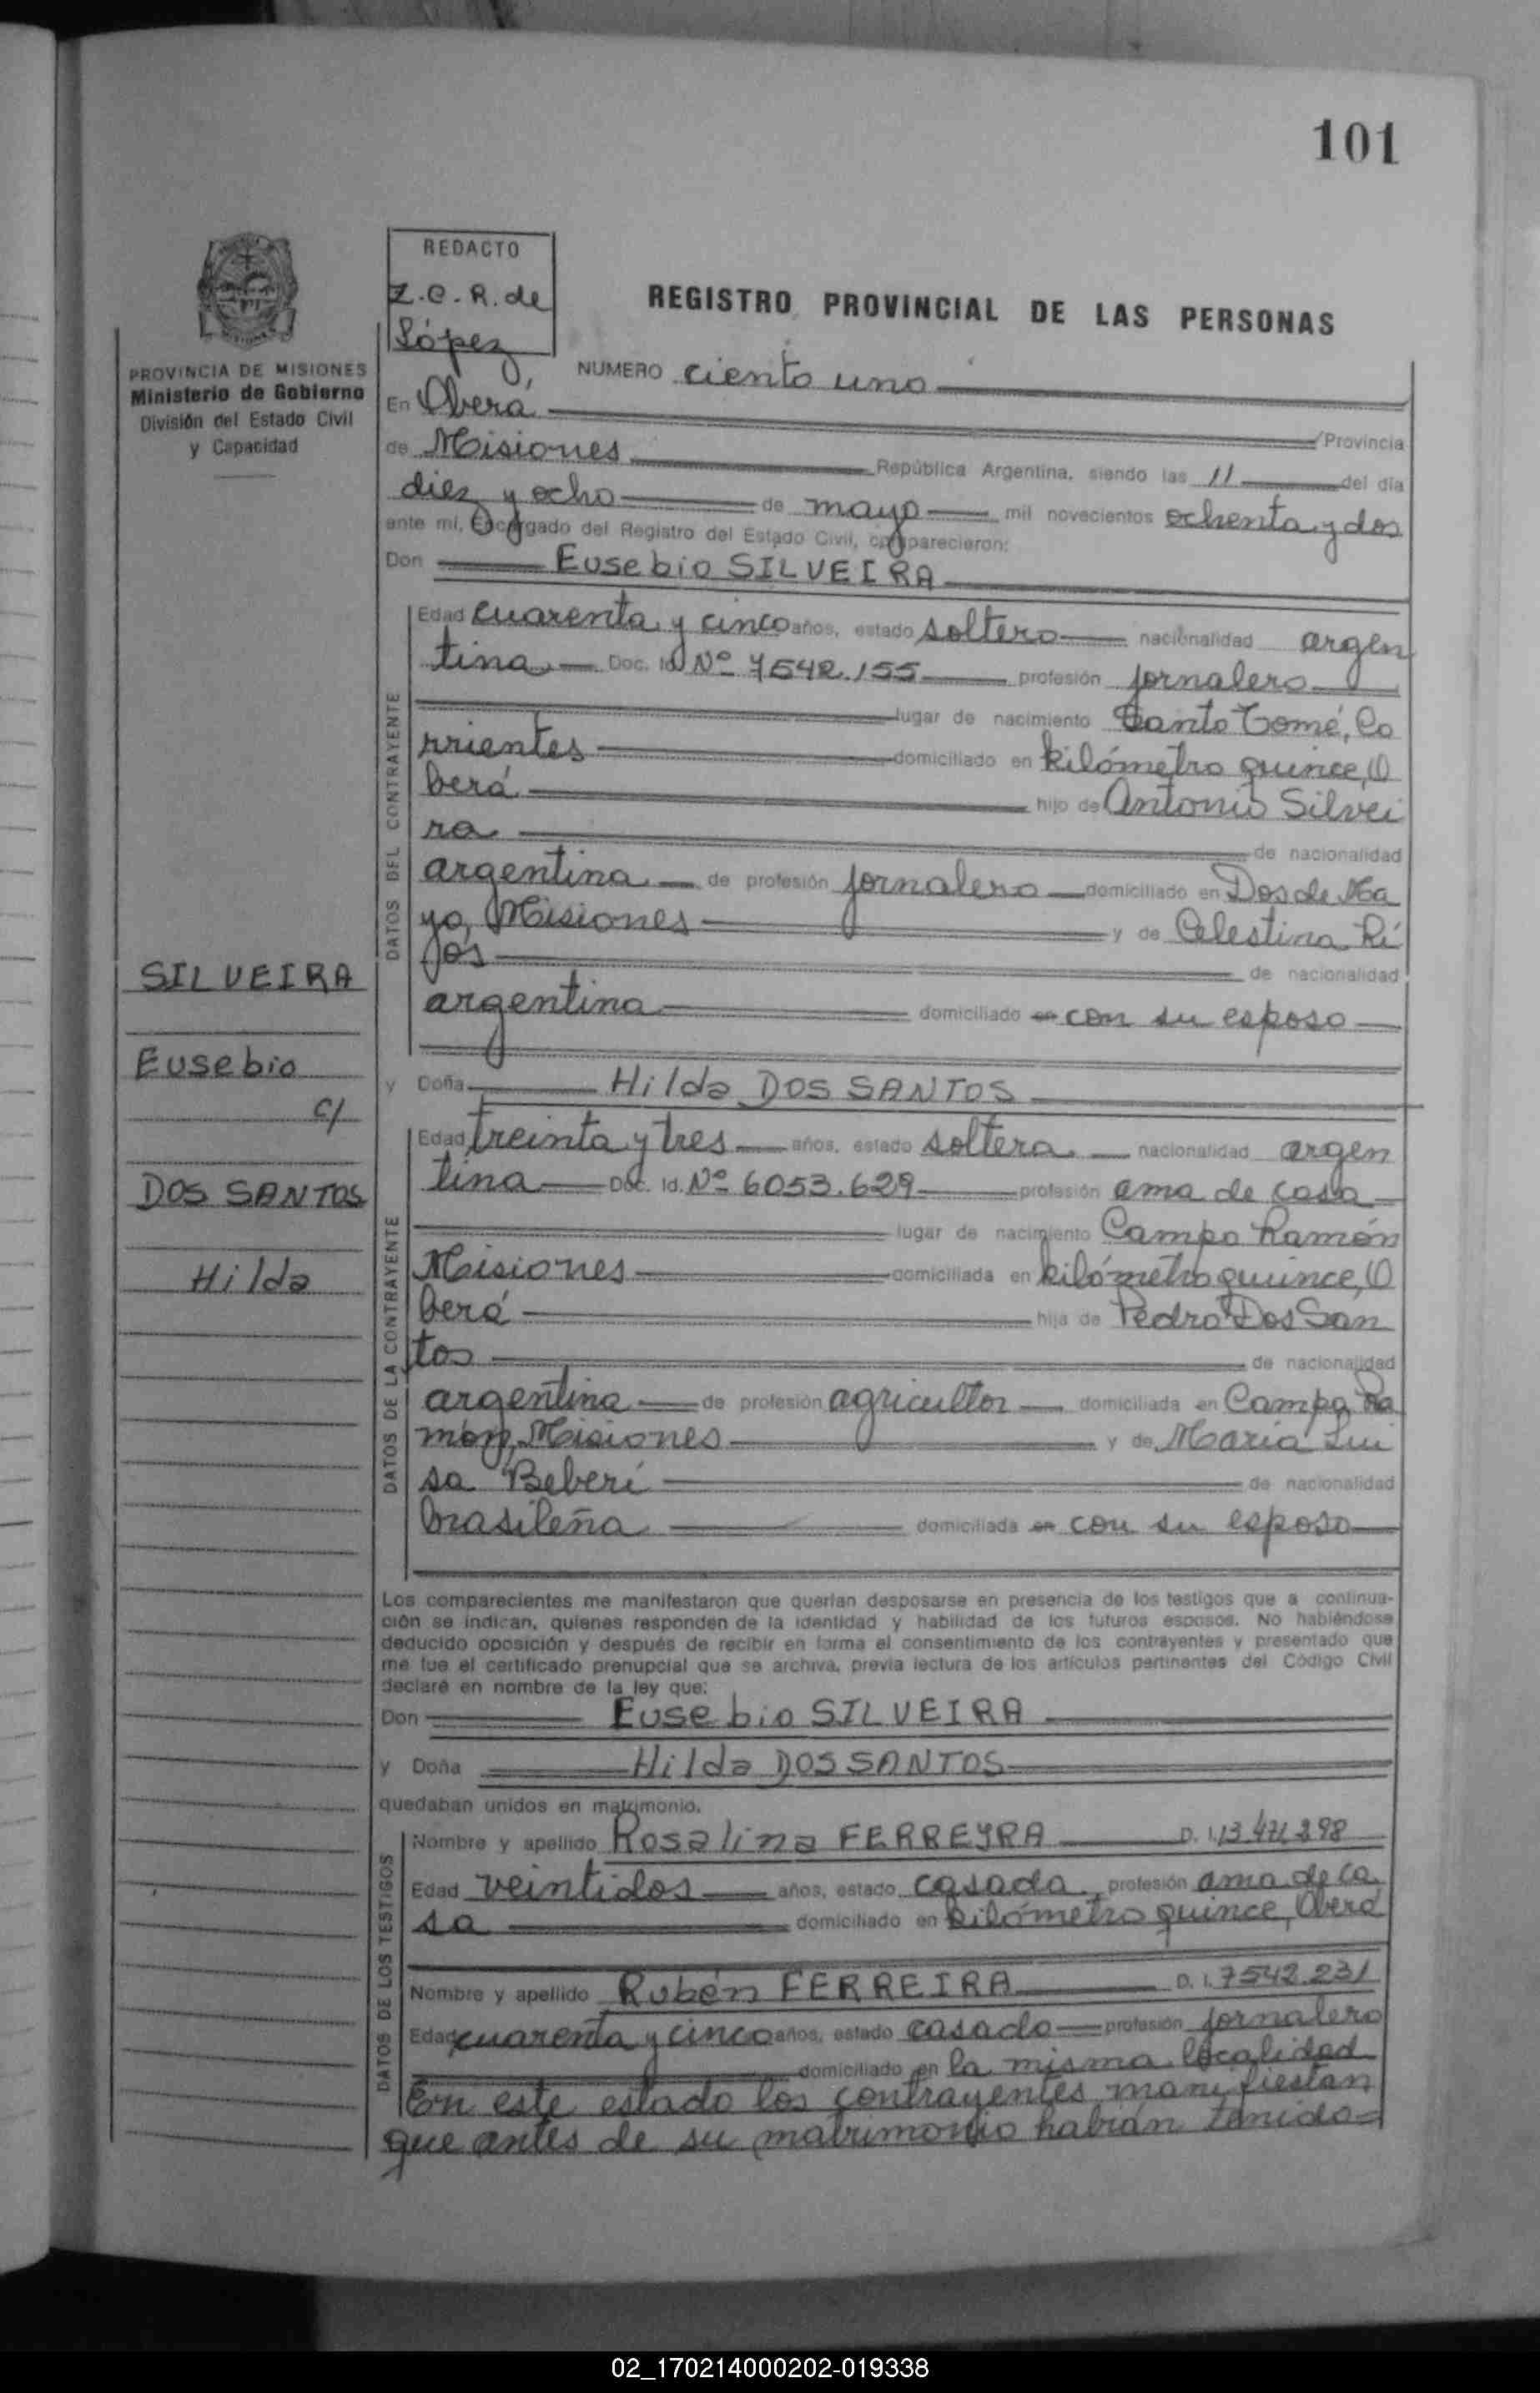 101
REDACTO
Z.C.R. de
López
PROVINCIA DE MISIONES
Ministerio de Gobierno
División del Estado Civil
y Capacidad
REGISTRO PROVINCIAL DE LAS PERSONAS
NUMERO ciento uno
En Oberá
/Provincia
de Misiones República Argentina, siendo las 11 del día
diez y ocho de mayo mil novecientos ochenta y dos
ante mí, Encargado del Registro del Estado Civil, comparecieron:
Don Eusebio SILVEIRA
DATOS DEL CONTRAYENTE
Edad cuarenta y cinco años, estado soltero nacionalidad argen
tina Doc. Id. Nº 7542.155 profesión jornalero
lugar de nacimiento Santo Tomé, Co
rrientes domiciliado en kilómetro quince, O
berá hijo de Antonio Silvei
ra de nacionalidad
argentina de profesión jornalero domiciliado en Dos de Ma
yo, Misiones y de Celestina Ri
jos de nacionalidad
argentina domiciliado en con su esposo
y Doña Hilda DOS SANTOS
SILVEIRA
Eusebio
c/
DOS SANTOS
Hilda
DATOS DE LA CONTRAYENTE
Edad treinta y tres años, estado soltera nacionalidad argen
tina Doc. Id. Nº 6053.629 profesión ama de casa
lugar de nacimiento Campo Ramón
Misiones domiciliada en kilómetro quince, O
berá hija de Pedro Dos San
tos de nacionalidad
argentina de profesión agricultor domiciliada en Campo Ra
món, Misiones y de María Lui
sa Beberí de nacionalidad
brasileña domiciliada en con su esposo
Los comparecientes me manifestaron que querían desposarse en presencia de los testigos que a continua-
ción se indican, quienes responden de la identidad y habilidad de los futuros esposos. No habiéndose
deducido oposición y después de recibir en forma el consentimiento de los contrayentes y presentado que
me fue el certificado prenupcial que se archiva, previa lectura de los artículos pertinentes del Código Civil
declaré en nombre de la ley que:
Don Eusebio SILVEIRA
y Doña Hilda DOS SANTOS
quedaban unidos en matrimonio.
DATOS DE LOS TESTIGOS
Nombre y apellido Rosalina FERREYRA D. I. 13.471.398
Edad veintidos años, estado casada profesión ama de ca
sa domiciliado en kilómetro quince, Oberá
Nombre y apellido Rubén FERREIRA D. I. 7542.231
Edad cuarenta y cinco años, estado casado profesión jornalero
domiciliado en la misma localidad
En este estado los contrayentes manifiestan
que antes de su matrimonio habían tenido
02_170214000202-019338